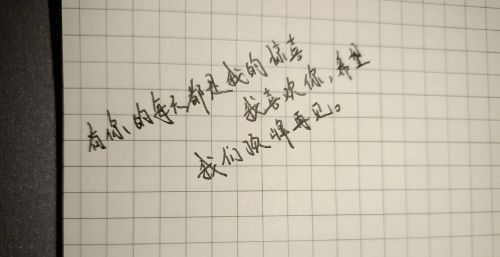 有你的每天都是我的惊喜
我喜欢你，希望
我们顶峰再见。